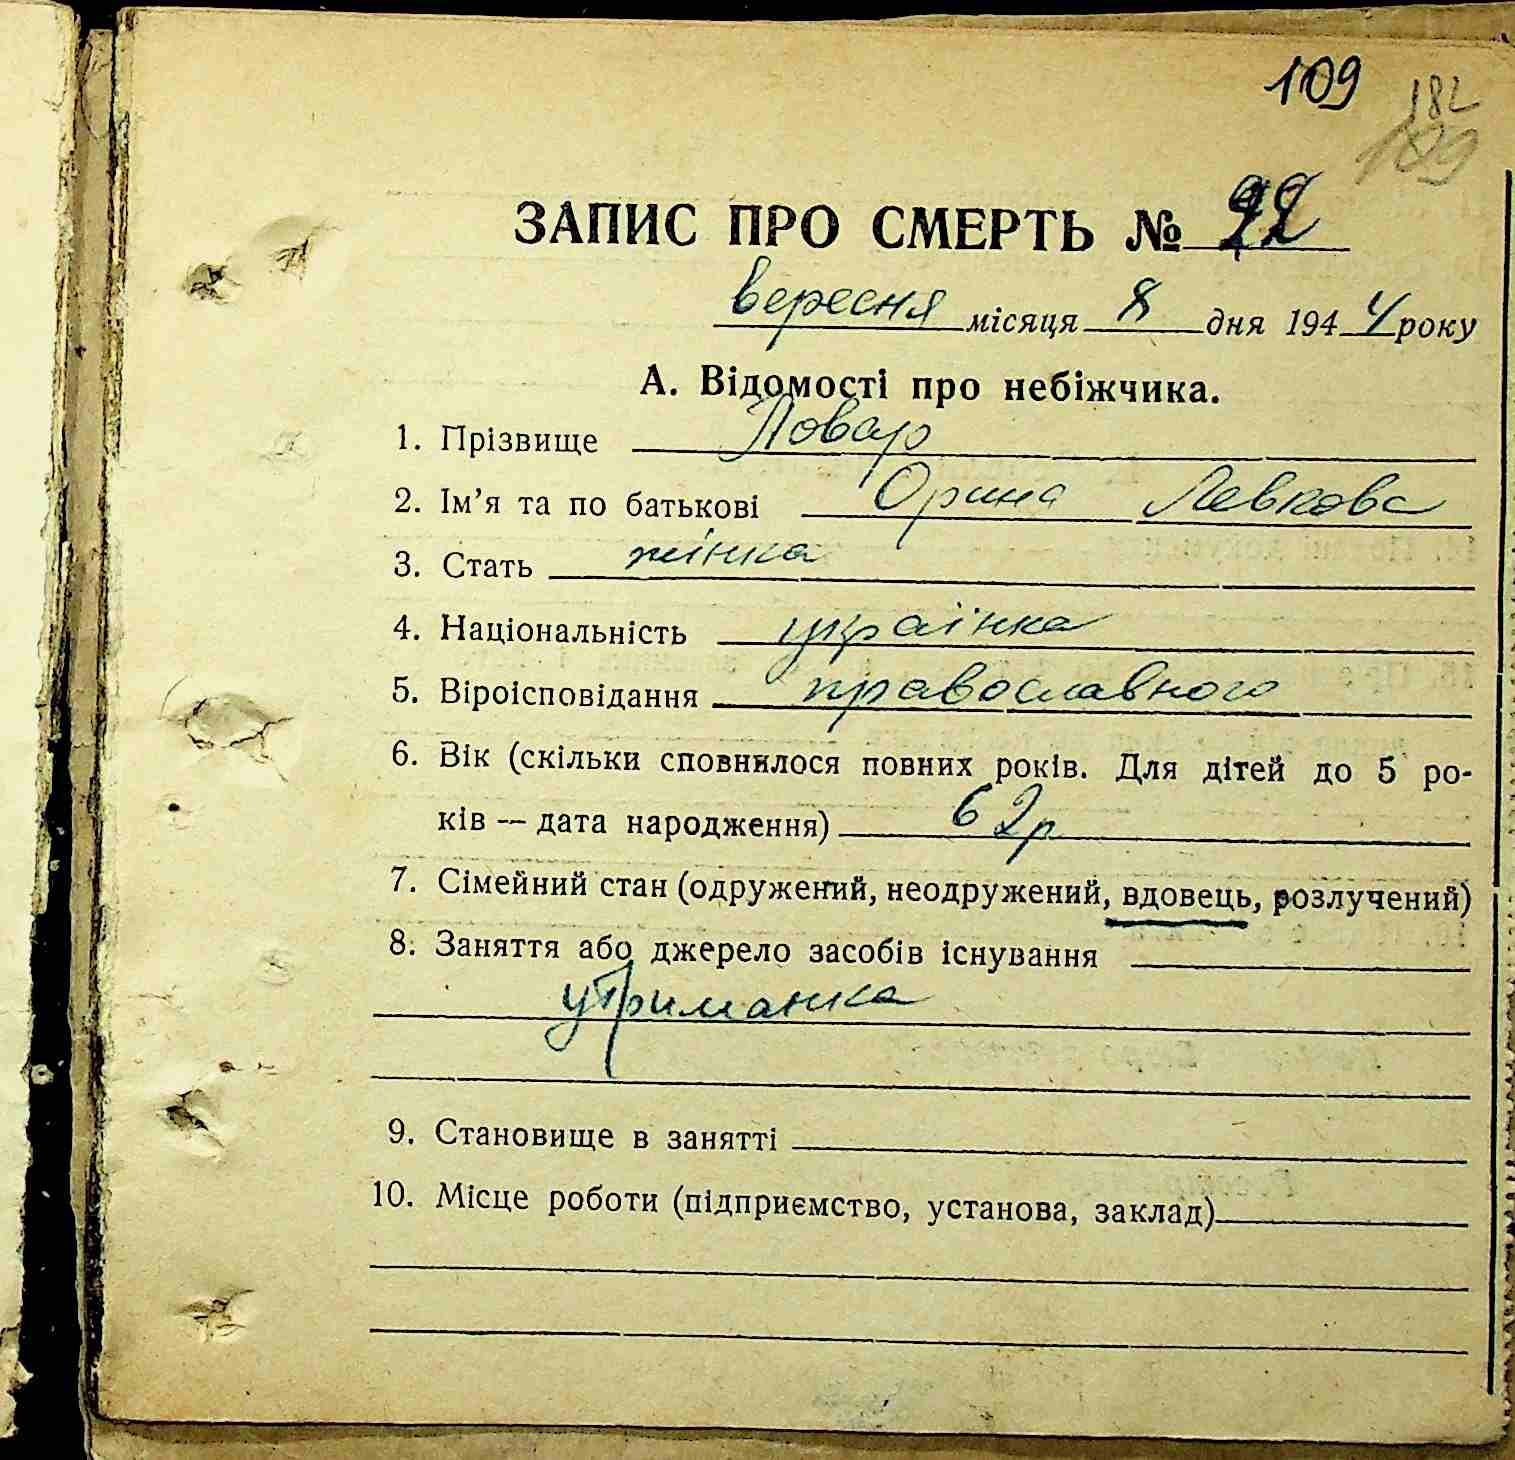 109
182
109
ЗАПИС ПРО СМЕРТЬ № 22
вересня місяця 8 дня 1944 року
А. Відомості про небіжчика.
1. Прізвище Повар
2. Ім'я та по батькові Орина Левкова
3. Стать жінка
4. Національність українка
5. Віроісповідання православного
6. Вік (скільки сповнилося повних років. Для дітей до 5 ро-
ків — дата народження) 62р
7. Сімейний стан (одружений, неодружений, вдовець, розлучений)
8. Заняття або джерело засобів існування
утриманка
9. Становище в занятті
10. Місце роботи (підприємство, установа, заклад)